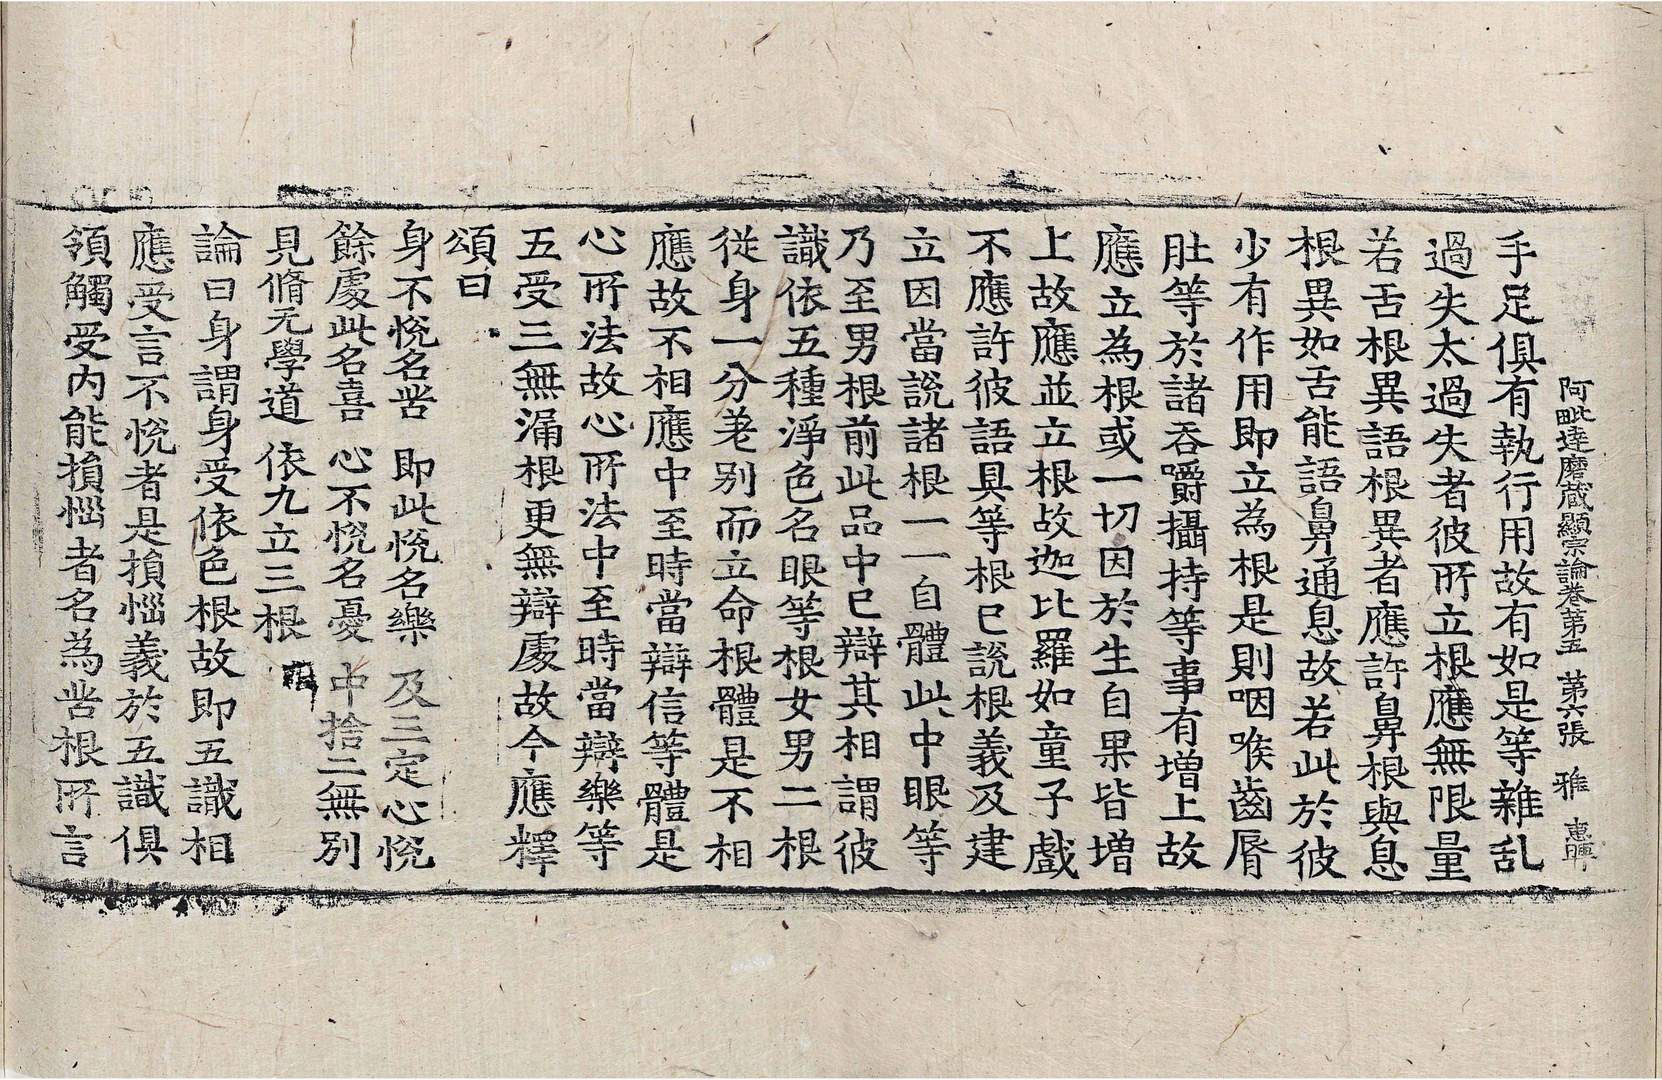 阿毗達磨藏顯宗論卷第五 第六張 雅 惠暉
手足俱有執行用故有如是等雜乱
過失太過失者彼所立根應無限量
若舌根異語根異者應許鼻根與息
根異如舌能語鼻通息故若此於彼
少有作用即立為根是則咽喉齒脣
肚等於諸吞嚼攝持等事有增上故
應立為根或一切因於生自果皆增
上故應並立根故迦比羅如童子戲
不應許彼語具等根已說根義及建
立因當說諸根一一自體此中眼等
乃至男根前此品中已辯其相謂彼
識依五種淨色名眼等根女男二根
從身一分差別而立命根體是不相
應故不相應中至時當辯信等體是
心所法故心所法中至時當辯樂等
五受三無漏根更無辯處故今應釋
頌曰
身不悅名苦 即此悅名樂 及三定心悅
餘處此名喜 心不悅名憂 中捨二無別
見脩无學道 依九立三根
論曰身謂身受依色根故即五識相
應受言不悅者是損惱義於五識俱
領觸受內能損惱者名為苦根所言